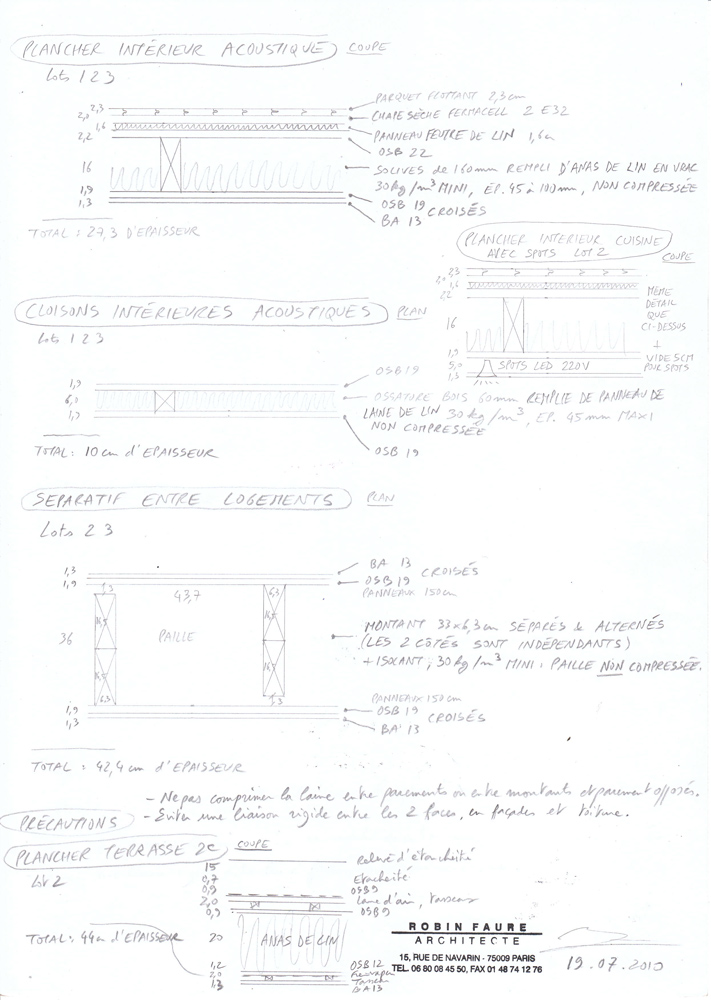 PLANCHER INTÉRIEUR ACOUSTIQUE COUPE
Lots 1 2 3
2,3
2,0
1,6
2,2
16
1,9
1,3
PARQUET FLOTTANT 2,3 cm
CHAPE SÈCHE FERMACELL 2 E32
PANNEAU FEUTRE DE LIN 1,6
OSB 22
SOLIVES de 160mm REMPLI D'ANAS DE LIN EN VRAC
30kg/m³ MINI, EP. 45 à 100mm, NON COMPRESSÉE
OSB 19 CROISÉS
BA 13
TOTAL : 27,3 D'EPAISSEUR
PLANCHER INTERIEUR CUISINE
AVEC SPOTS LOT 2
COUPE
2,3
2,0
1,6
2,2
16
1,9
5,0
1,3
MÊME
DÉTAIL
QUE
CI-DESSUS
+
VIDE 5CM
POUR SPOTS
SPOTS LED 220V
CLOISONS INTÉRIEURES ACOUSTIQUES PLAN
Lots 1 2 3
1,9
6,0
1,9
OSB 19
OSSATURE BOIS 60mm REMPLIE DE PANNEAU DE
LAINE DE LIN 30kg/m³, EP. 45mm MAXI
NON COMPRESSÉE
OSB 19
TOTAL : 10 cm d'EPAISSEUR
SEPARATIF ENTRE LOGEMENTS PLAN
Lots 2 3
1,3
1,9
36
1,9
1,3
43,7
6,3
16,5
16,5
6,3
PAILLE
6,3
16,5
16,5
6,3
BA 13 CROISÉS
OSB 19
PANNEAUX 150cm
MONTANT 33x6,3cm SÉPARÉS & ALTERNÉS
(LES 2 CÔTÉS SONT INDÉPENDANTS)
+ ISOLANT, 30kg/m³ MINI : PAILLE NON COMPRESSÉE.
PANNEAUX 150cm
OSB 19 CROISÉS
BA 13
TOTAL : 42,4 cm d'EPAISSEUR
PRÉCAUTIONS
- Ne pas comprimer la laine entre parements ou entre montants et parement opposés.
- Eviter une liaison rigide entre les 2 faces, en façades et toiture.
PLANCHER TERRASSE 2e COUPE
Lot 2
15
0,7
0,9
2,0
0,9
20
1,2
2,0
1,3
Relevé d'étanchéité
Etachéité
OSB 9
Lame d'air, tasseaux
OSB 9
ANAS DE LIN
OSB 12
Tasseau
BA 13
TOTAL : 44 cm d'EPAISSEUR
ROBIN FAURE
ARCHITECTE
15, RUE DE NAVARIN - 75009 PARIS
TEL. 06 80 08 45 50, FAX 01 48 74 12 76
19.07.2010